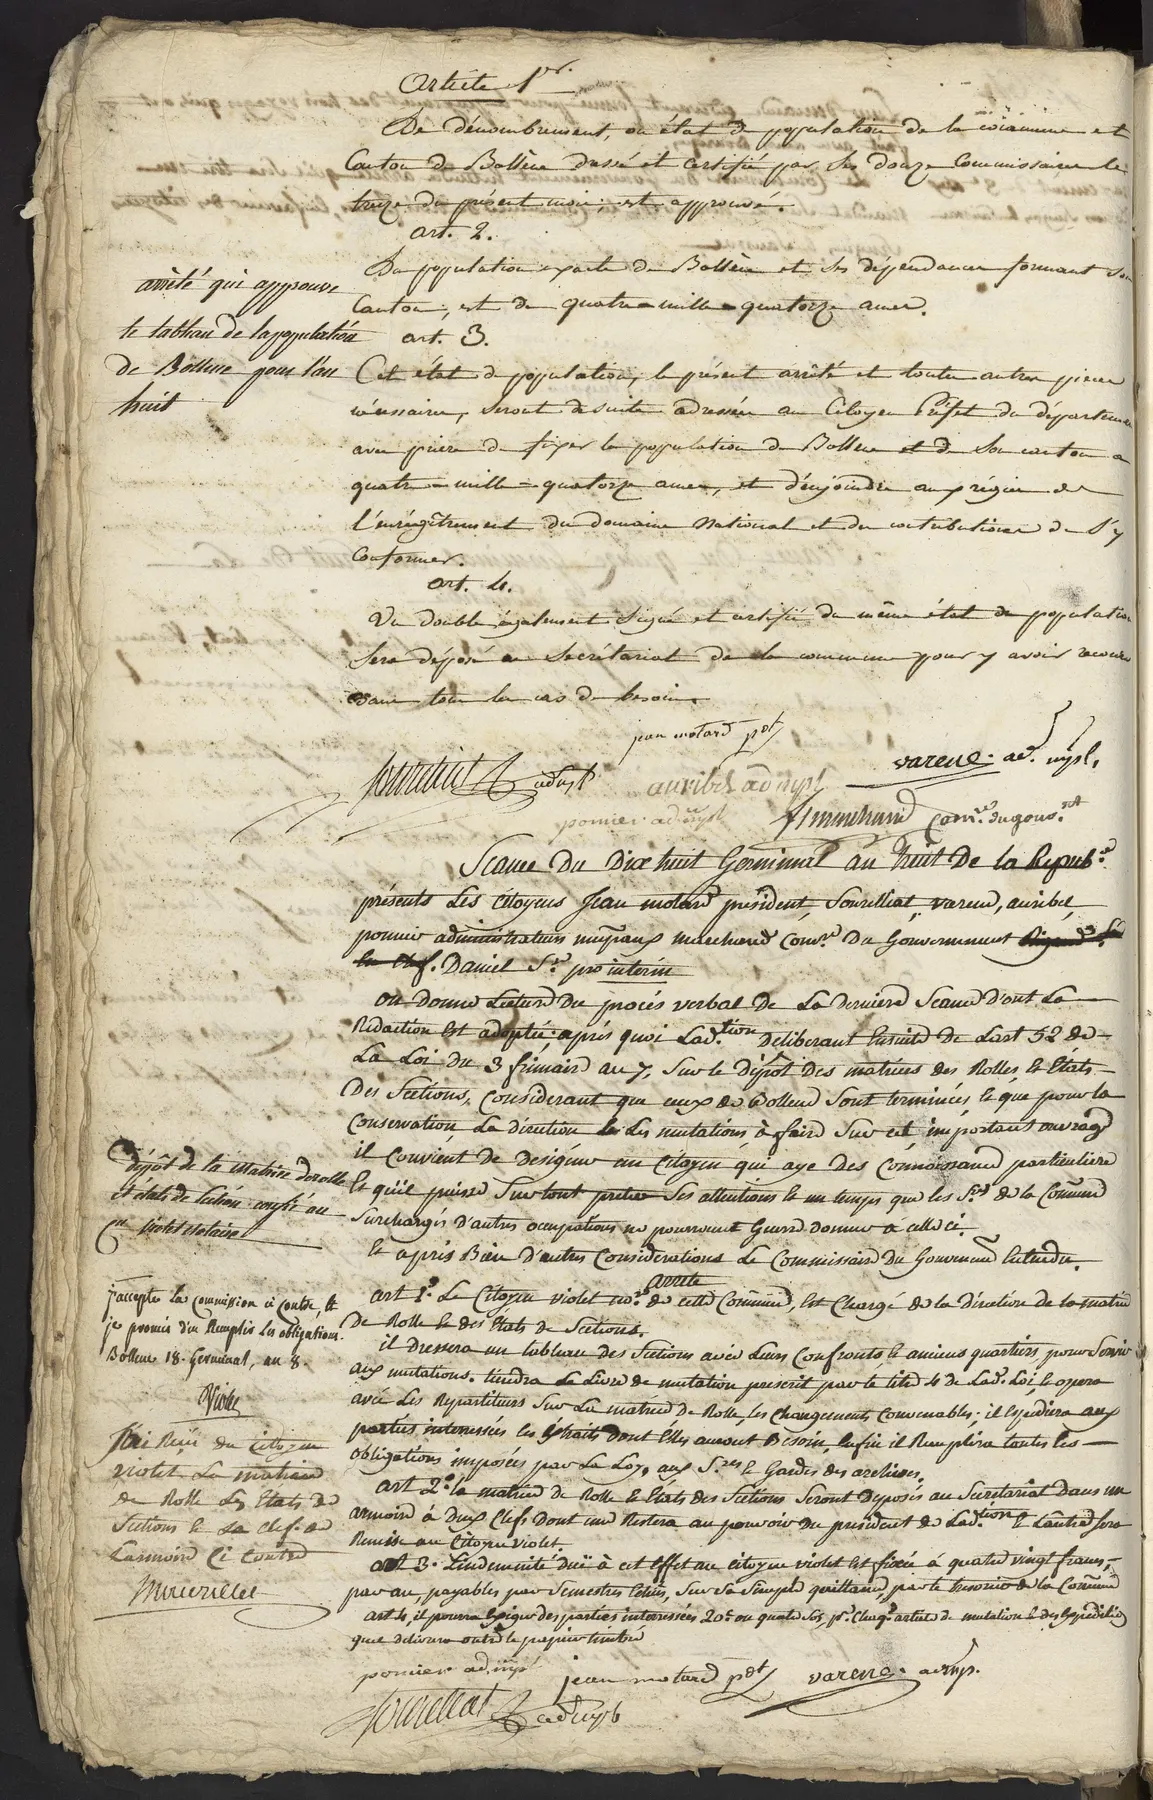 article 1er.
Le dénombrement, ou état de population de la commune et
Canton de Bollène dressé et certifié par les douze Commissaires le
treize du présent mois, est approuvé.
art. 2.
La population exacte de Bollène et ses dépendances formant son
Canton, est de quatre-mille-quatorze ames.
art. 3.
Cet état de population, le présent arrêté et toutes autres pieces
nécessaires, seront de suite adressées au Citoyen Préfet du département
avec priere de fixer la population de Bollene et de son canton a
quatre-mille-quatorze ames, et d'enjoindre aux régies de
l'enrégitrement du domaine national et des contributions de s'y
Conformer.
art. 4.
Un double également signé et certifié du même état de population
sera déposé au secrétariat de la commune pour y avoir recours
dans tous les cas de besoin.
arrêté qui approuve
le tableau de la population
de Bollene pour l'an
huit
jean motard pdt
varene. ad. mpl.
Sourelliat admpl
auribel admpl
ponnier. admpl
marchand Comre. du gouvnt
Seance Du Dix huit Germinal an huit De la Republ.e
présents Les Citoyens Jean motard président, Sourelliat, varene, auribel,
ponnier administrateurs mupaux marchand Comre. Du Gouvernement
en chef. Daniel Sre. pro interim
on donne Lecture Du procés verbal de La derniere Seance d'ont La
Rédaction Est adoptée après quoi Lad.tion Déliberant Ensuite De Lart 52 de
La Loi du 3 frimaire an 7, Sur le Dépôt Des matrices des Rolles, & Etats
Des Sections, Considerant que ceux de Bollene Sont terminés, & que pour la
Conservation, La direction & Les mutations à faire Sur cet important ouvrage
il Convient de Designer un Citoyen qui aye Des Connoissances particuliere
& qu'il puisse Sur tout preter Ses attentions & en temps que les Sres de la Commune
Surchargés d'autres occupations ne pourroient Guere donner a celle ci.
& après Bien D'autres Considerations Le Commissaire Du Gouvernement Entendu.
arrete
art 1º. Le Citoyen violet nore. de cette Commune, Est Chargé de la Direction de la matrice
De Rolle & des Etats de Sections.
il dressera un tableau des Sections avec Leurs Confronts & anciens quartiers, pour Servir
aux mutations. tiendra Le Livre de mutation prescrit par le titre 4 de Lad. Loi, & opera
avec Les Repartiteurs Sur La matrice De Rolle, les Changements Convenables; il Expediera aux
parties interressées les Extraits dont Elles auront Besoin, Enfin il Remplira toutes les
obligations imposées par La Loy, aux Sres & Gardes des archives.
art 2º. la matrice de Rolle & Etats des Sections Seront Deposés au Secretariat Dans un
armoire à deux Clefs Dont une Restera au pouvoir Du president de Lad.tion & Lautre Sera
Remise au Citoyen violet.
art 3. Lindemnité Duë à cet Effet au Citoyen violet Est fixée à quatre vingt francs,
par an, payables par Semestres Echus, Sur Sa Simple quittance, par le tresorier de la Commune
art 4, il pourra Exiger des parties interressées 20c. ou quatre Sols, pr. Chaqe. article de mutation & des Expéditions
que delivrera outre le papier timbré
Dépôt de la Matrice de rolle
et états de Section confié au
Cn violet Notaire
j'accepte la Commission ci contre, &
je promis d'en Remplir les obligations.
Bollene 18. Germinal, an 8.
Violet
J'ai Reçu du Citoyen
violet La matrice
de Rolle les Etats de
Sections & La Clef de
Larmoire Ci Contre
ponnier ad. mpl
jean motard pdt
varene. admp.
Sourelliat admpb